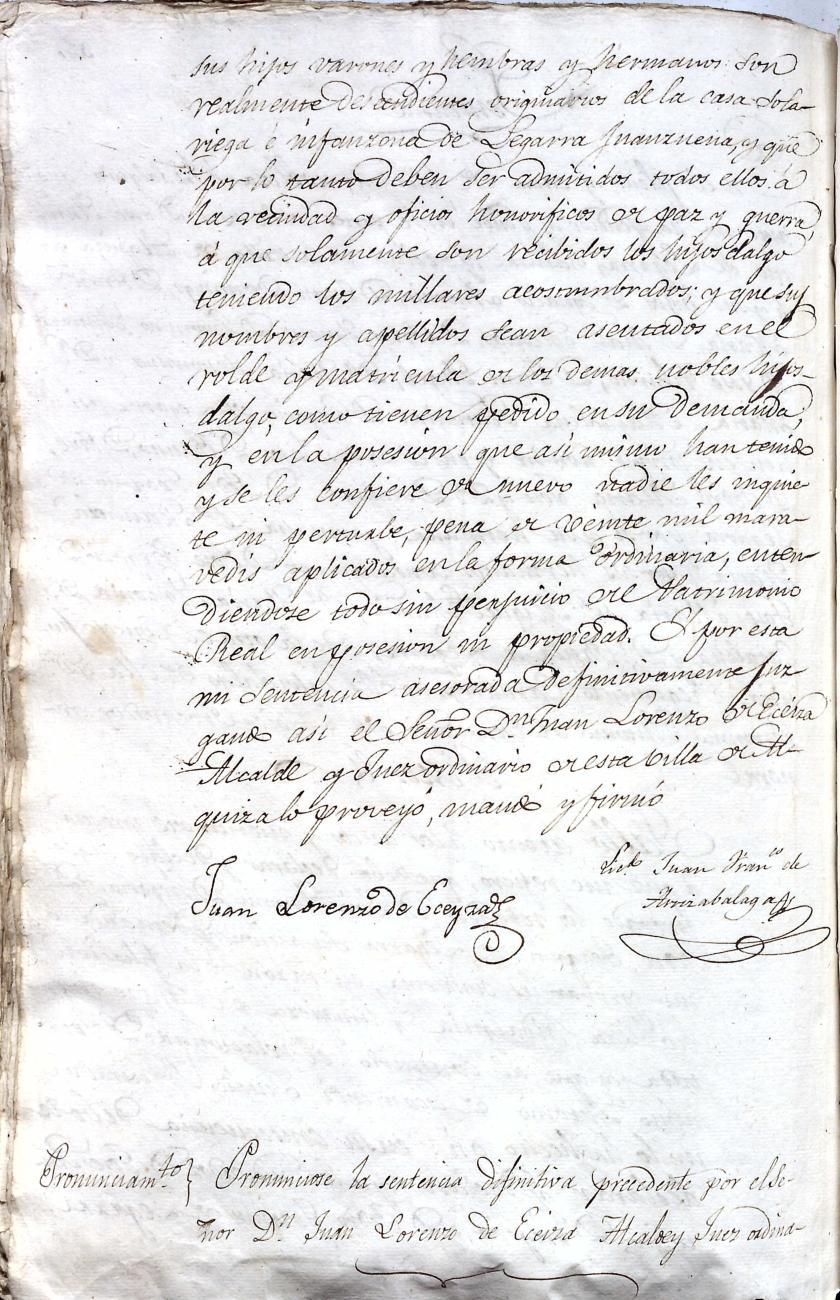 sus hijos varones y hembras y hermanos son
realmente descendientes originarios de la casa sola-
riega é infanzona de Legarra Juanzuena, y que
por lo tanto deben ser admitidos todos ellos á
la vecindad y oficios honorificos de paz y guerra,
á que solamente son recibidos los hijos dalgo
teniendo los millares acostumbrados; y que sus
nombres y apellidos sean asentados en el
rolde y matrícula de los demas nobles hijos-
dalgo, como tienen pedido en su demanda,
y en la posesion que asi mismo han tenido
y se les confiere de nuevo nadie les inquie-
te ni perturbe, pena de veinte mil mara-
vedis aplicados en la forma ordinaria, enten-
diendose todo sin perjuicio del Patrimonio
Real en posesion ni propiedad. Y por esta
mi sentencia asesorada definitivamente juz-
gando así el Señor Dn. Juan Lorenzo de Eceiza
Alcalde y Juez ordinario de esta villa de Al-
quiza lo proveyó, mandó y firmó
Licdo. Juan Franco. de
Arrizabalaga
Juan Lorenzo de Eceyza
Pronunciamto. Pronunciose la sentencia difinitiva precedente por el Se-
ñor Dn Juan Lorenzo de Eceiza Alcalde y Juez ordina-